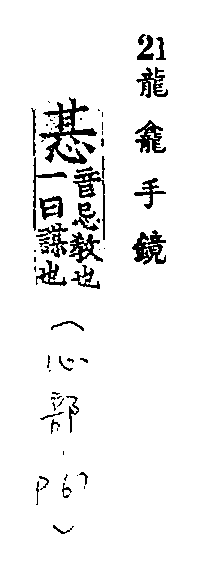 21龍龕手鏡
惎音忌教也
一曰謀也
（心部.P67）